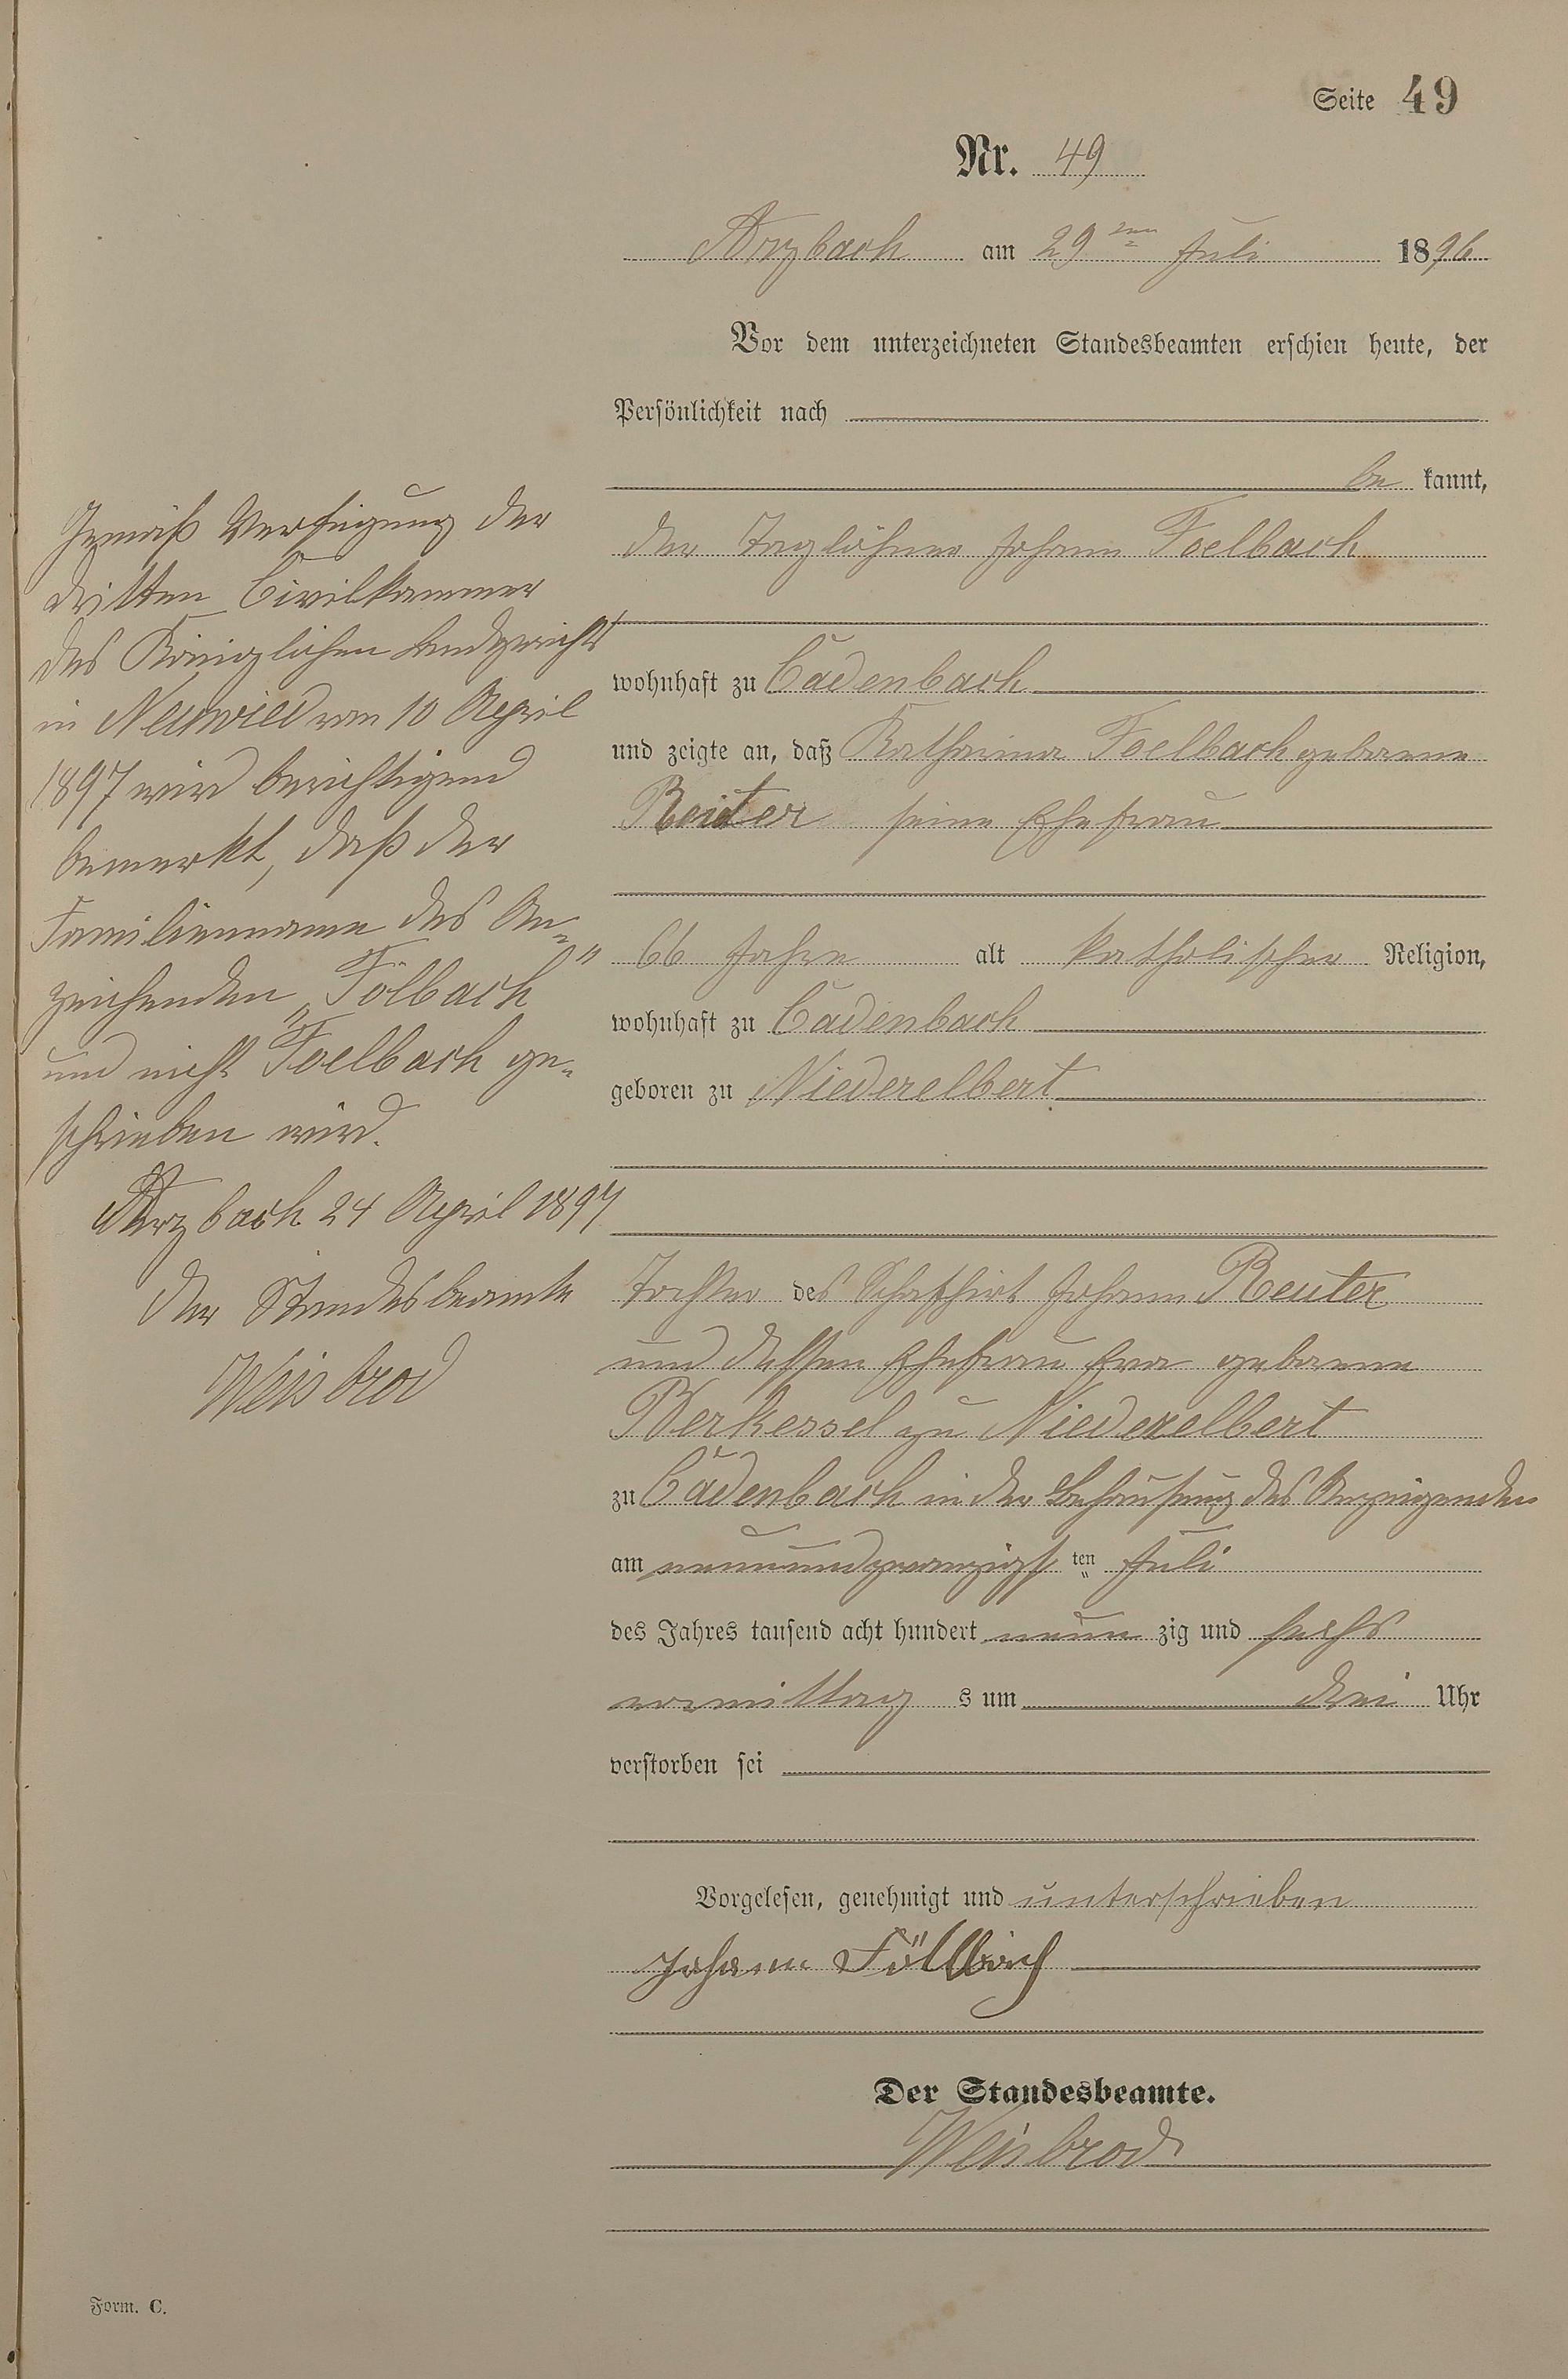 Seite 49
Nr. 49
Arzbach am 29ten Juli 1896
Vor dem unterzeichneten Standesbeamten erschien heute, der
Persönlichkeit nach
be kannt,
der Taglöhner Johann Foelbach
wohnhaft zu Cadenbach
und zeigte an, daß Katharina Foelbach geborene
Reuter seine Ehefrau
66 Jahre alt katholischer Religion,
wohnhaft zu Cadenbach
geboren zu Niederelbert
Tochter des Schafhirt Johann Reuter
und dessen Ehefrau Eva geborene
Berkessel zu Niederelbert
zu Cadenbach in der Behausung des Anzeigenden
am neunundzwanzigsten Juli
des Jahres tausend acht hundert neun zig und sechs
vormittag s um drei Uhr
verstorben sei
Vorgelesen, genehmigt und unterschrieben
Johann Föllbach
Der Standesbeamte.
Weisbrod
Gemäß Verfügung der
dritten Civilkammer
des Königlichen Landgerichts
in Neuwied vom 10 April
1897 wird berichtigend
bemerkt, daß der
Familienname des An-
zeigenden „Fölbach"
und nicht Foelbach ge-
schrieben wird.
Arzbach 24 April 1897
Der Standesbeamte
Weisbrod
Form. C.